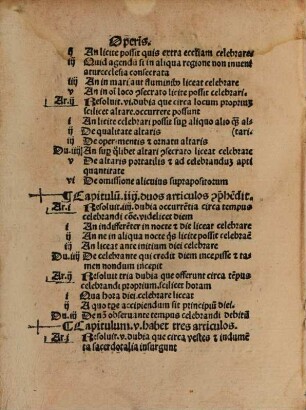 Operis.
ij An licite possit quis extra ecclesiam celebrare
iij Quid agendū si in aliqua regione non inueni
atur ecclesia consecrata
iiij An in mari aut fluminibus liceat celebrare
v An in oī loco ꝯsecrato licite possit celebrari.
Ar.ij Resoluit.vj.dubia que circa locum propriuȝ
scilicet altare.occurrere possunt
i An licite celebrari possit suꝑ aliquo alio ꝙ̄ al-
ij De qualitate altaris (tari-
iij De operimentis ⁊ ornatu altaris
Du.iiij An suꝑ ꝗ̄libet altari ꝯsecrato liceat celebrare
v De altaris portatilis ⁊ ad celebrandum apti
quantitate
vj De omissione alicuius suprapositorum
¶Capitulū.iiij.duos articulos ꝯp̄hēdit.
Ar.i Resoluit.iiij.dubia occurrētia circa tempus
celebrandi cōe.videlicet diem
i An indifferēter in nocte ⁊ die liceat celebrare
ij An ne in aliqua nocte ꝗs licite possit celebrare
iij An liceat ante initium diei celebrare
Du.iiij De celebrante qui credit diem incepisse ⁊ ta-
men nondum incepit
Ar.ij Resoluit tria dubia que offerunt circa tēpus
celebrandi proprium.scilicet horam
i Qua hora diei celebrare liceat
ij A quo tꝑe accipiendum sit principiū diei.
Du.iij De nō obseruante tempus celebrandi debitū
¶Capitulum.v.habet tres articulos.
Ar.i Resoluit.v.dubia que circa vestes ⁊ indumē
ta sacerdotalia insurgunt